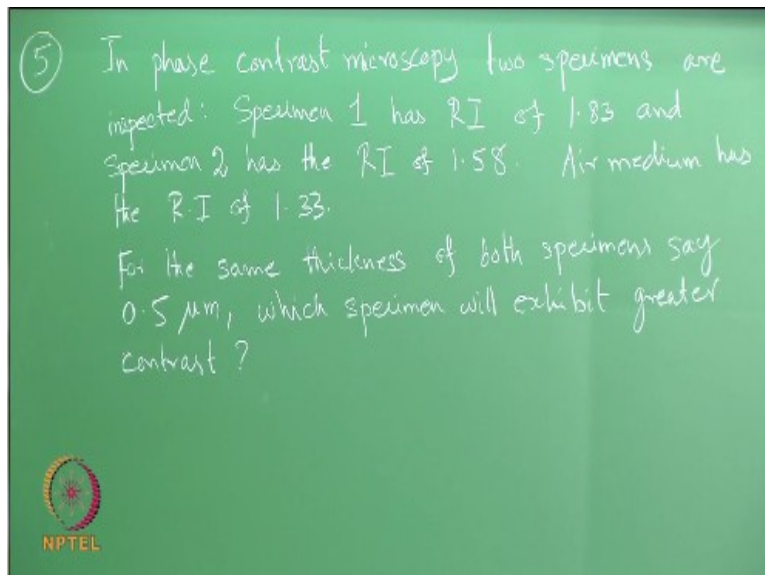 5 In phase contrast microscopy two specimens are
inspected: Specimen 1 has RI of 1.83 and
Specimen 2 has the RI of 1.58. Air medium has
the R.I of 1.33.
For the same thickness of both specimens say
0.5 μm, which specimen will exhibit greater
contrast?
NPTEL